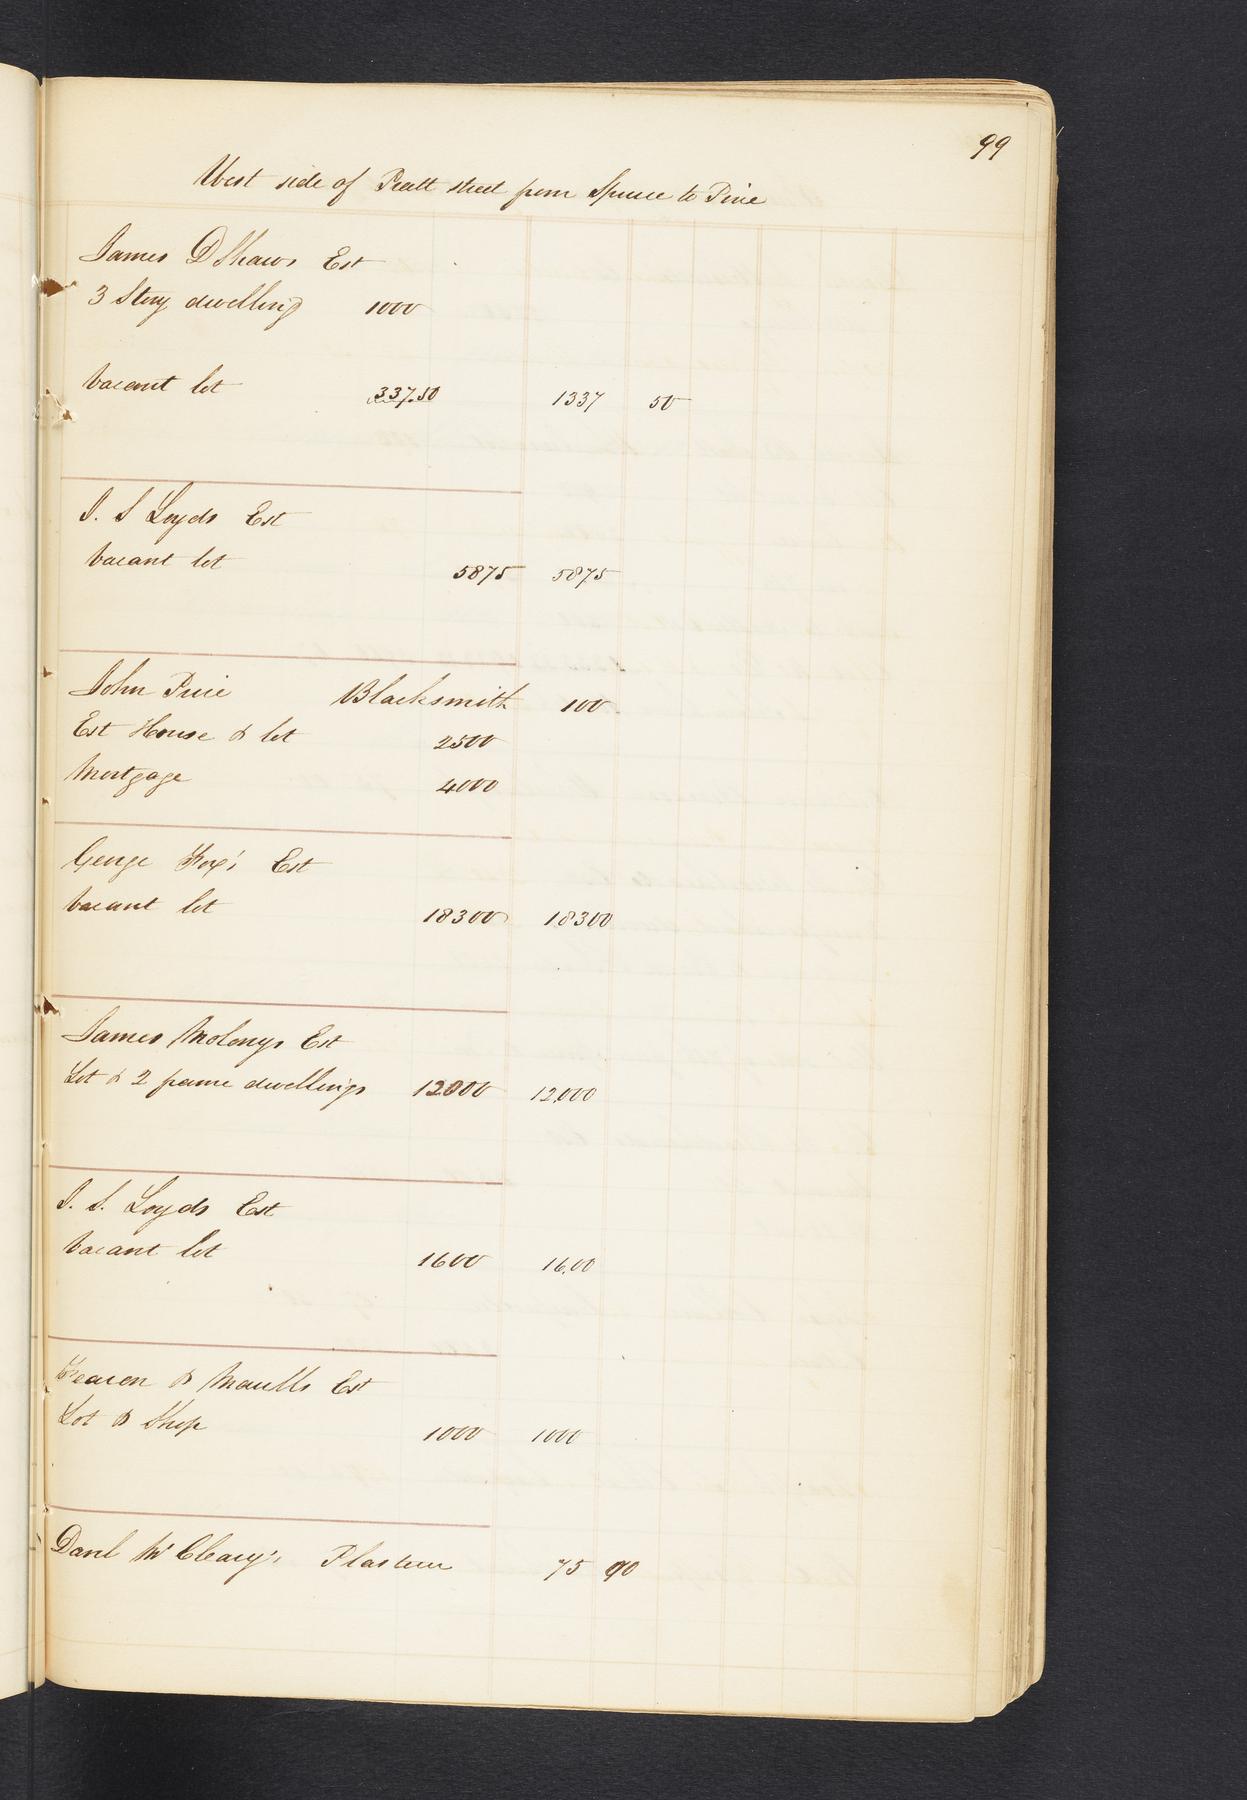 99
West side of Pratt street from Spruce to Pine
James D Shaws Est
3 Story dwelling 1000
Vacant lot 337.50 1337 50
I. S Loyds Est
Vacant lot 5875 5875
John Price Blacksmith 100
Est House & lot 2500
Mortgage 4000
George Fox's Est
Vacant lot 18300 18300
James Molonys Est
Lot & 2 frame dwellings 12000 12,000
I. S. Loyds Est
Vacant lot 1600 16,00
Fearon & Maulls Est
Lot & Shop 1000 1000
Danl McCleary's Plasterer 75 90